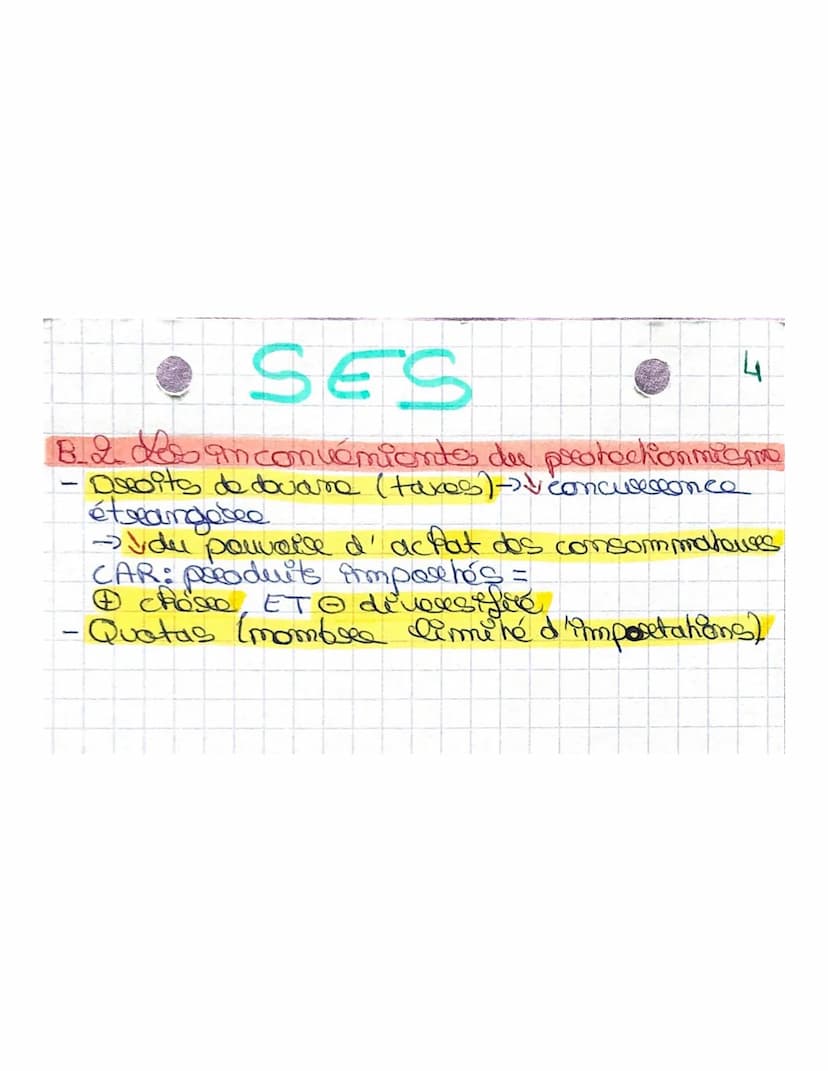 SES
4
B.2 Les inconvénients du protectionnisme
- Droits de douane (taxes) → ↓ concurrence
étrangère
→ ↓ du pouvoir d'achat des consommateurs
CAR : produits importés =
⊕ chère, ET ⊖ diversifié
- Quotas (nombre limité d'importations)